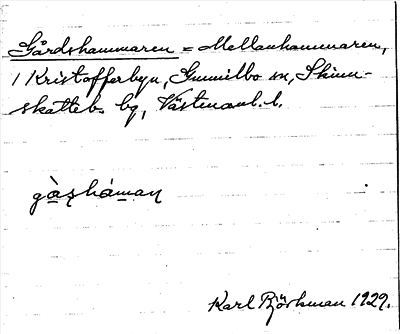 Gårdshammaren = Mellanhammaren,
i Kristofferbyn, Gunnilbo sn, Skinn-
skatteb. bg, Västmanl. l.
gàʂhámaɳ
Karl Björkman 1929.